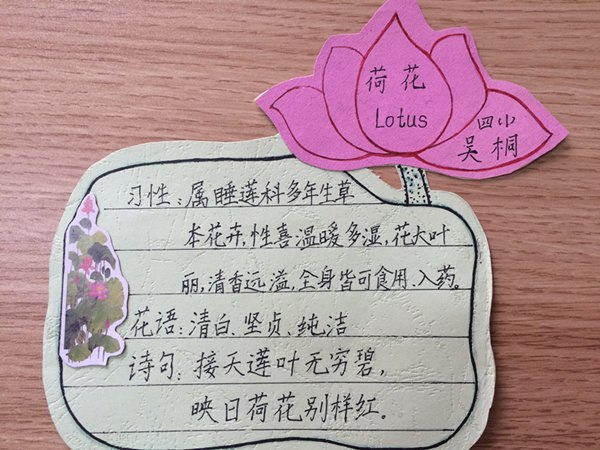 荷花
Lotus
四小
吴桐
习性:属睡莲科多年生草
本花卉,性喜温暖多湿,花大叶
丽,清香远溢,全身皆可食用、入药。
花语:清白、坚贞、纯洁
诗句:接天莲叶无穷碧,
映日荷花别样红。